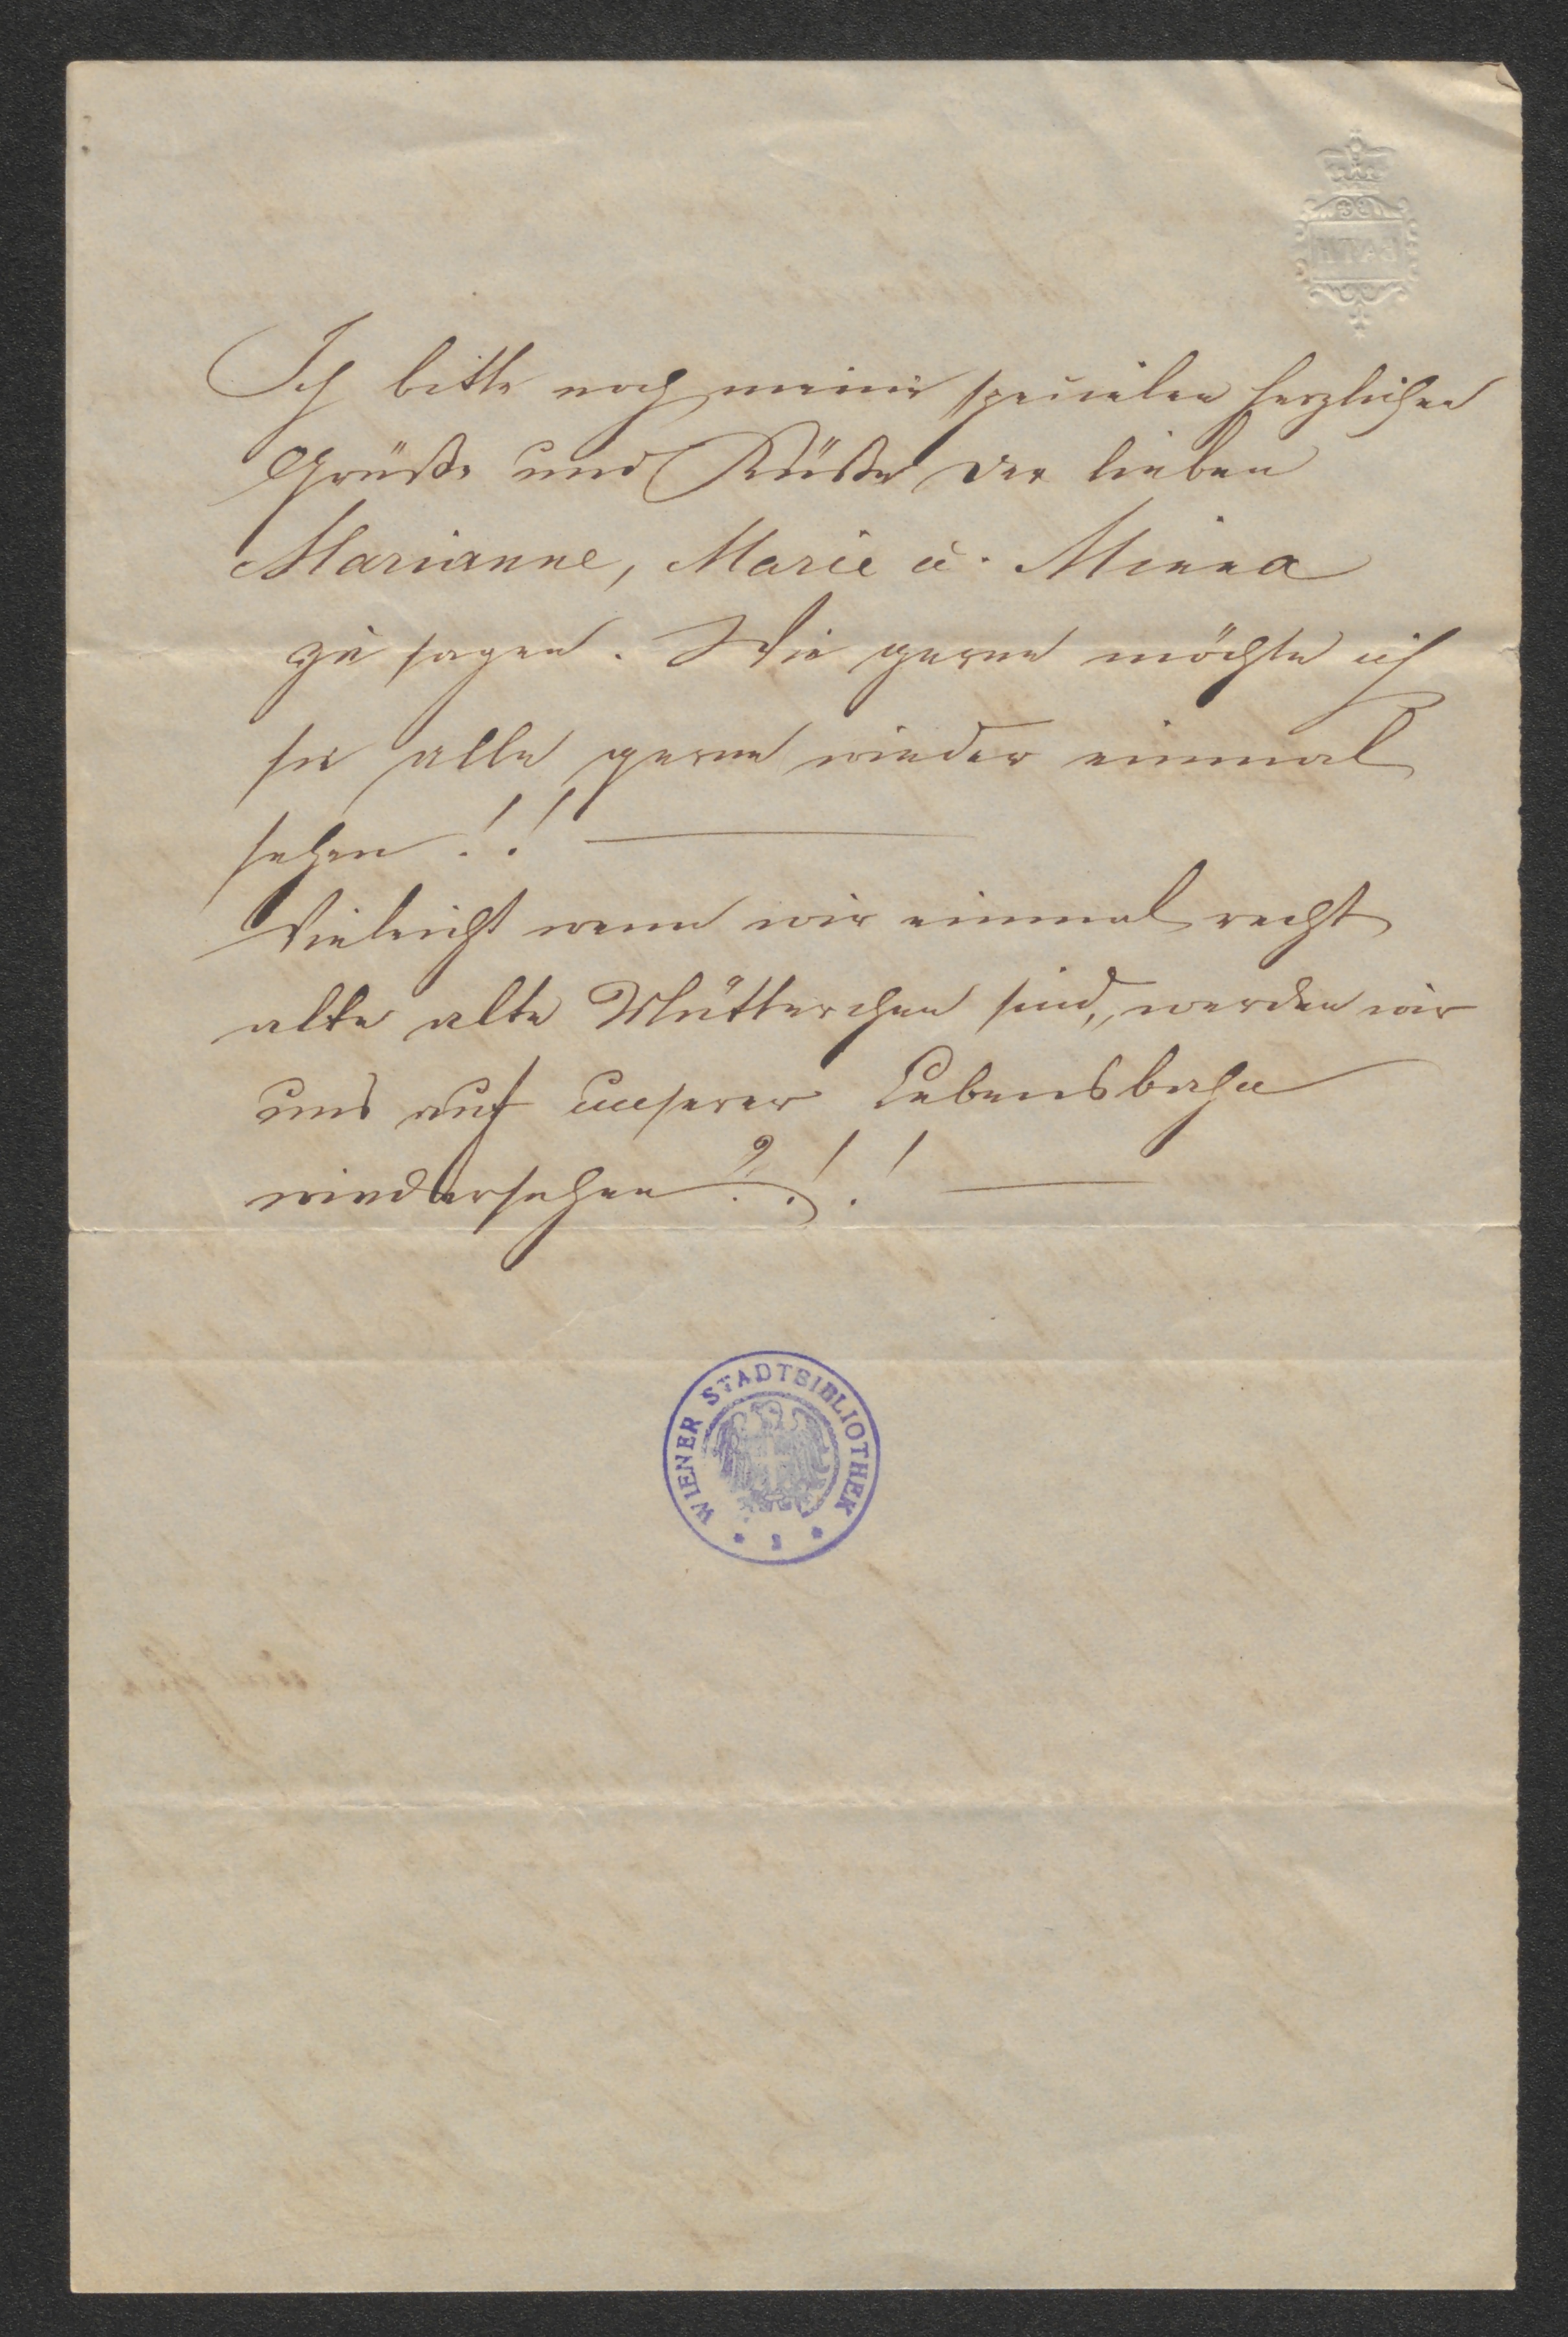 Ich bitte noch meine speciellen herzlichen
Grüße und Küße der lieben
Marianne, Marie u. Minna
zu sagen. Wie gerne möchte ich
sie alle gerne wieder einmal
sehen!! —
Vieleicht wenn wir einmal recht
alte alte Mütterchen sind, werden wir
uns auf unserer Lebensbahn
wiedersehen?!! —
WIENER STADTBIBLIOTHEK
BATH